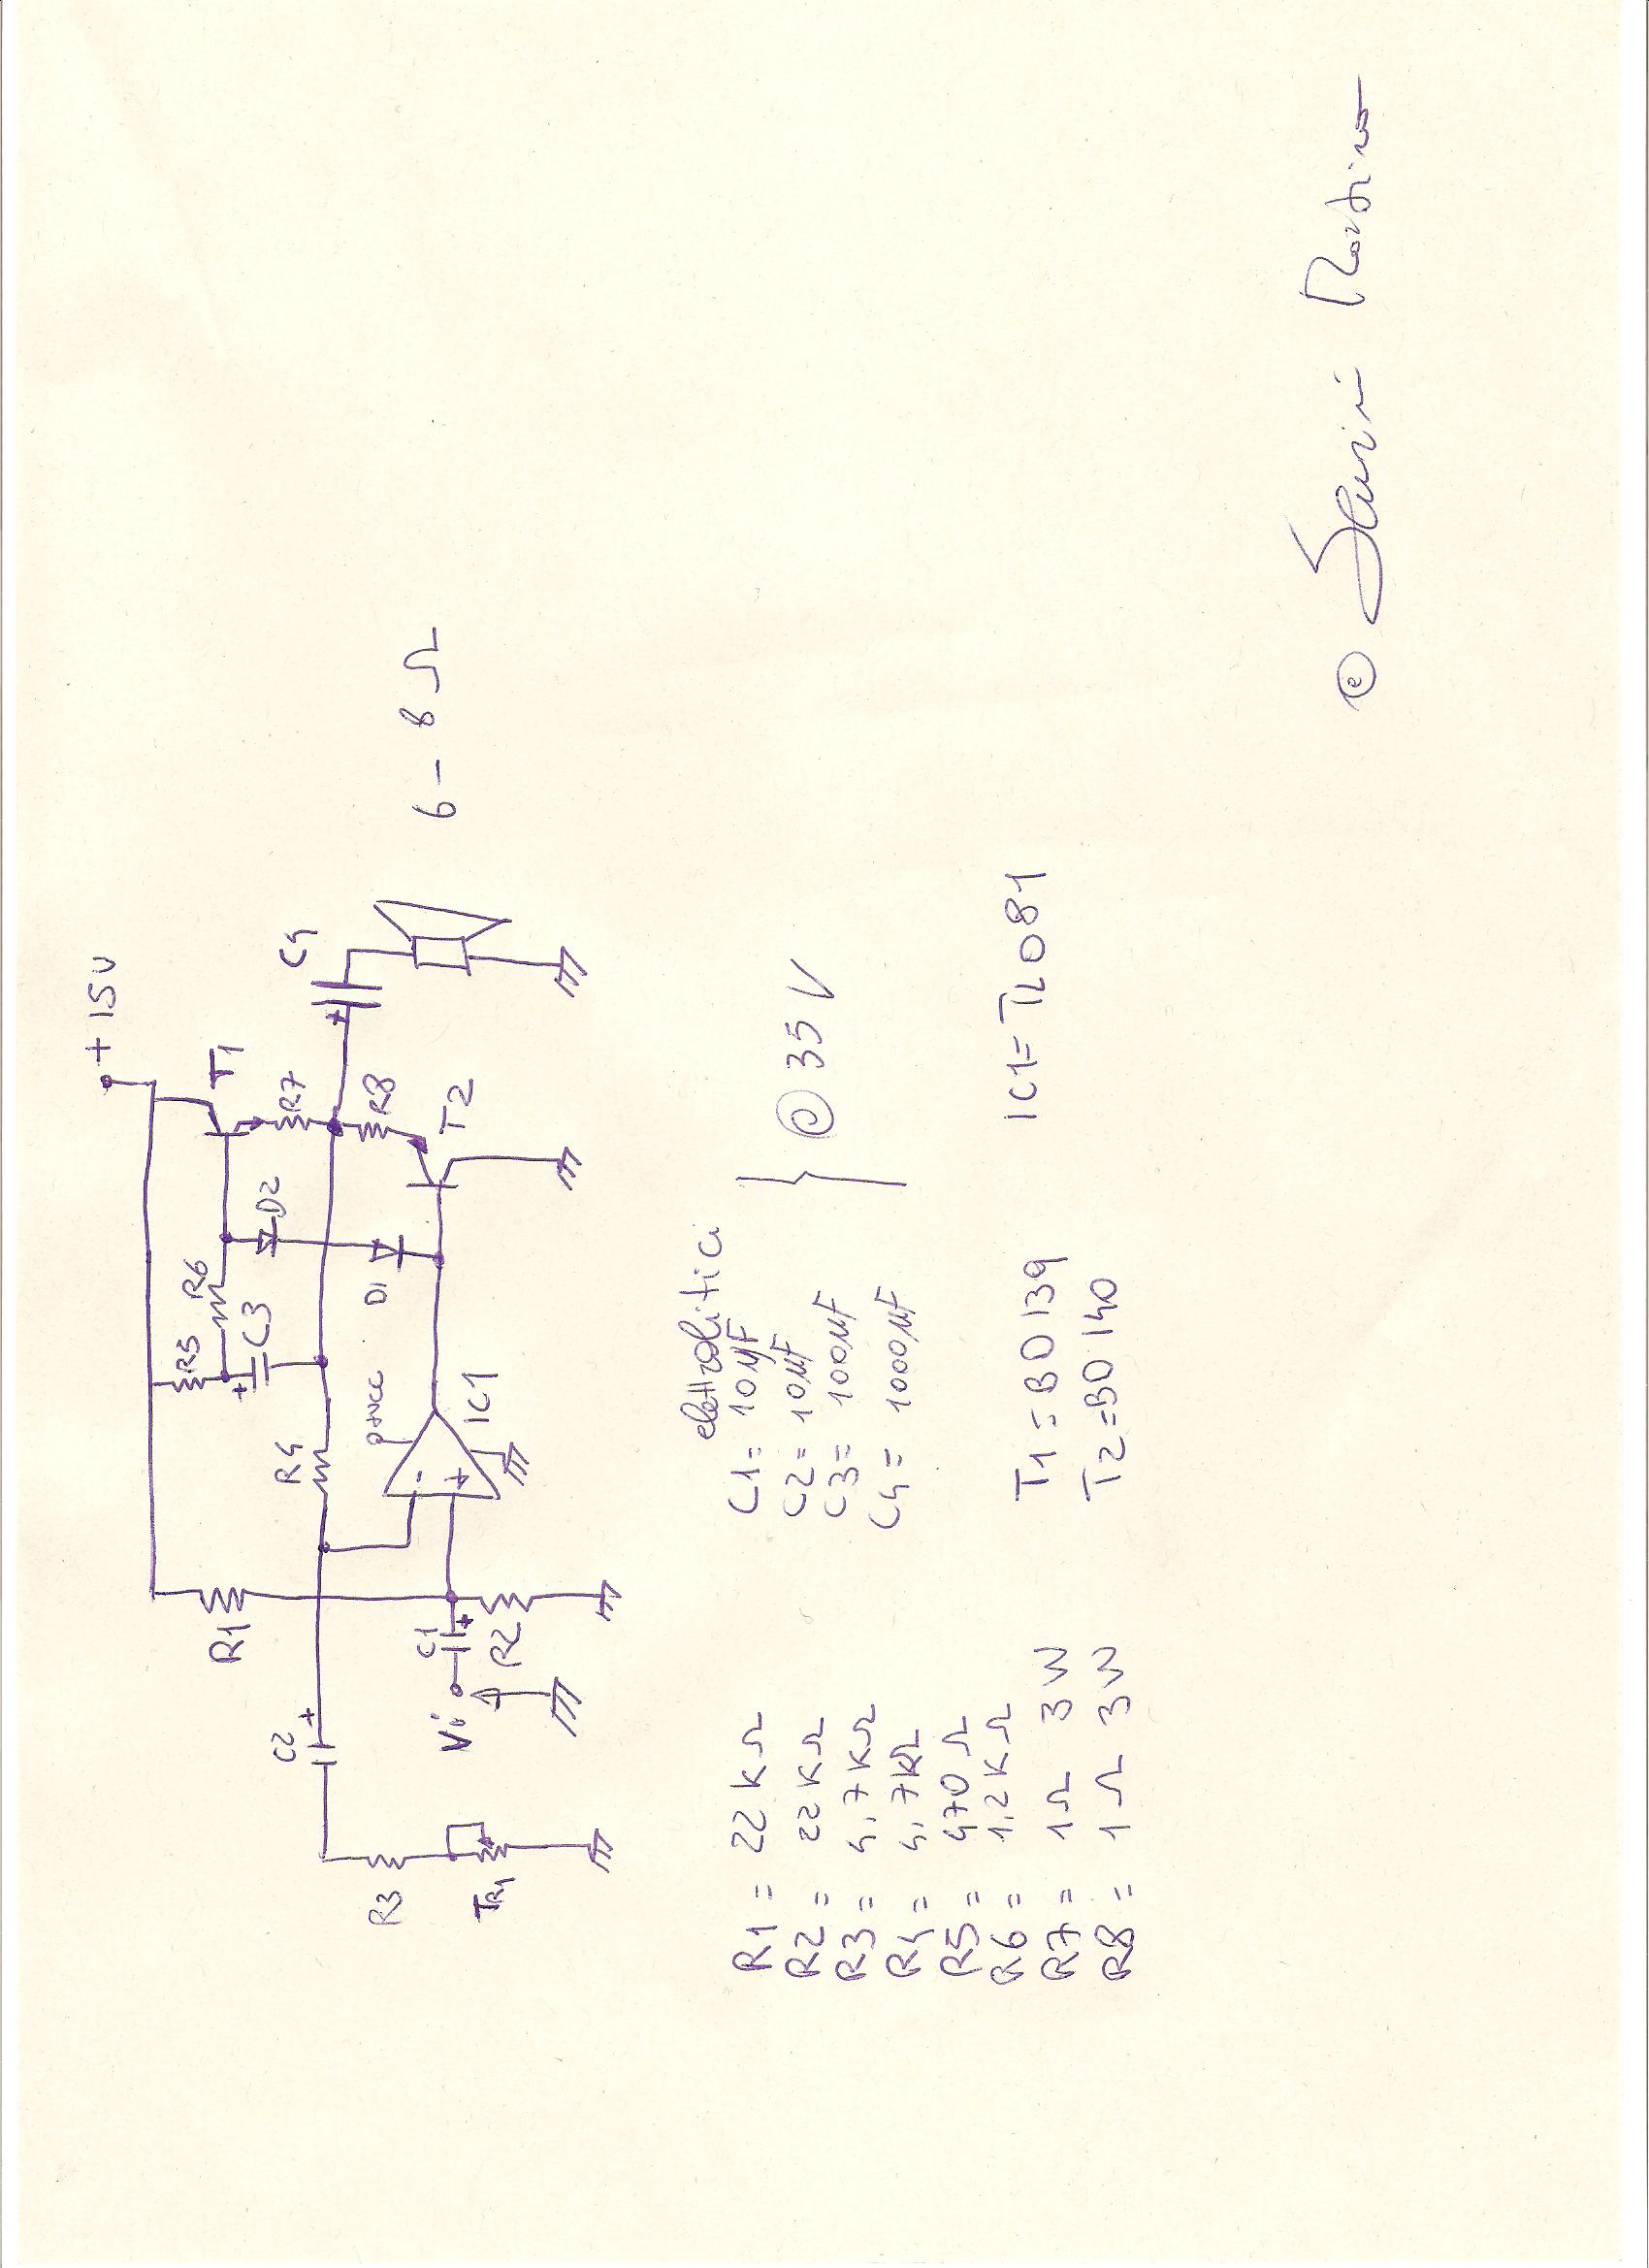 +15V
R1
R5
R6
C3
D2
T1
R7
C4
R8
6-8Ω
C2
R4
+VCC
D1
T2
IC1
R3
TR1
Vi
C1
R2
- +
elettrolitici
R1 = 22 KΩ
R2 = 22 KΩ
R3 = 4,7 KΩ
R4 = 4,7 KΩ
R5 = 470 Ω
R6 = 1,2 KΩ
R7 = 1 Ω 3W
R8 = 1 Ω 3W
C1 = 10 µF
C2 = 10 µF
C3 = 100 µF
C4 = 1000 µF
@ 35 V
T1 = BD139
T2 = BD140
IC1 = TL081
©